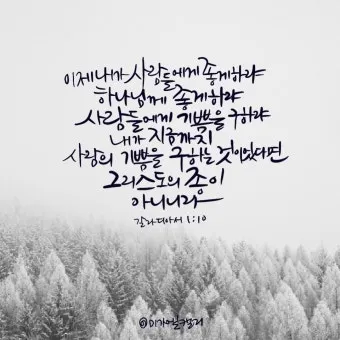 이제 내가 사람들에게 좋게 하랴
하나님께 좋게 하랴
사람들에게 기쁨을 구하랴
내가 지금까지
사람의 기쁨을 구하는 것이었다면
그리스도의 종이
아니니라
갈라디아서 1:10
@미가엘캘리